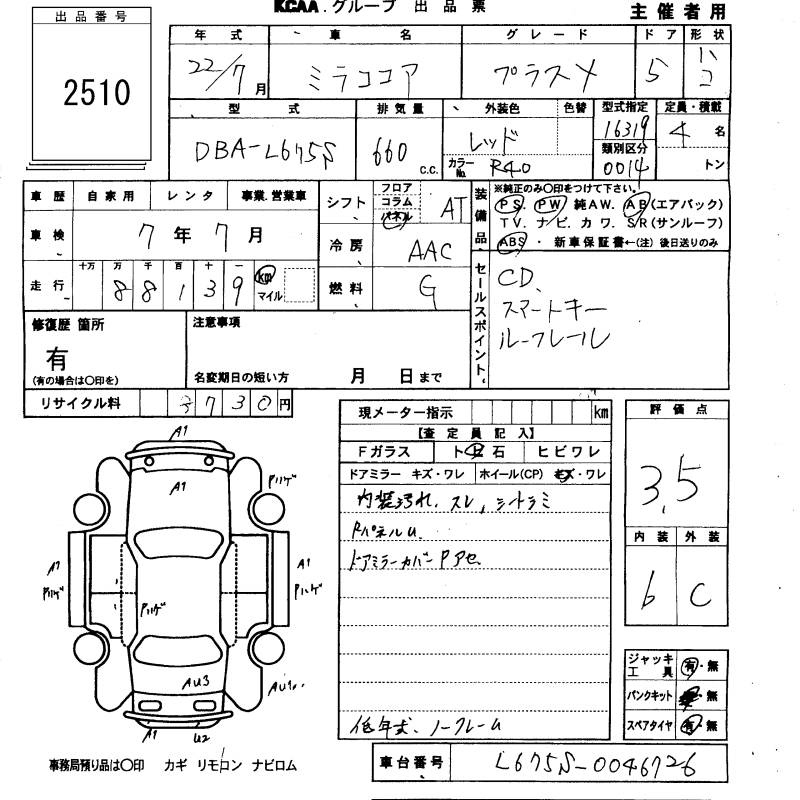 KCAA.グループ 出品票
主催者用
出品番号
2510
年式 車名 グレード ドア 形状
22/7月 ミラココア プラスX 5 ハコ
型式 排気量 外装色 色替 型式指定 定員・積載
DBA-L675S 660 C.C. レッド 16319 4 名
カラーNo. R40 類別区分 0014 トン
車歴 自家用 レンタ 事業.営業車
車検 7年7月
走行 十万 万 千 百 十 一
8 8 1 3 9 km マイル
シフト フロア コラム パネル AT
冷房 AAC
燃料 G
装備品 ※純正のみ〇印をつけて下さい。
PS. PW 純AW. AB(エアバック)
TV. ナビ. カワ. S/R(サンルーフ)
ABS・新車保証書←(注) 後日送りのみ
セールスポイント
CD.
スマートキー
ルーフレール
修復歴 箇所
有
(有の場合は〇印を)
注意事項
名変期日の短い方 月 日まで
リサイクル料 7730円
現メーター指示 km
【査定員記入】
Fガラス ト ビ 石 ヒビワレ
ドアミラー キズ・ワレ ホイール(CP) キズ・ワレ
内装汚れ、スレ、シートラミ
RパネルU.
ドアミラーカバーPアセ
低年式、ノークレーム
評価点
3.5
内装 外装
6 C
ジャッキ工具 有・無
パンクキット 無
スペアタイヤ 有・無
A1
A1
Pハゲ
A1 Pハゲ
A1 Pハゲ
Pハゲ
AU3
A1
U2
事務局預り品は〇印 カギ リモコン ナビロム
車台番号 L675S-0046726